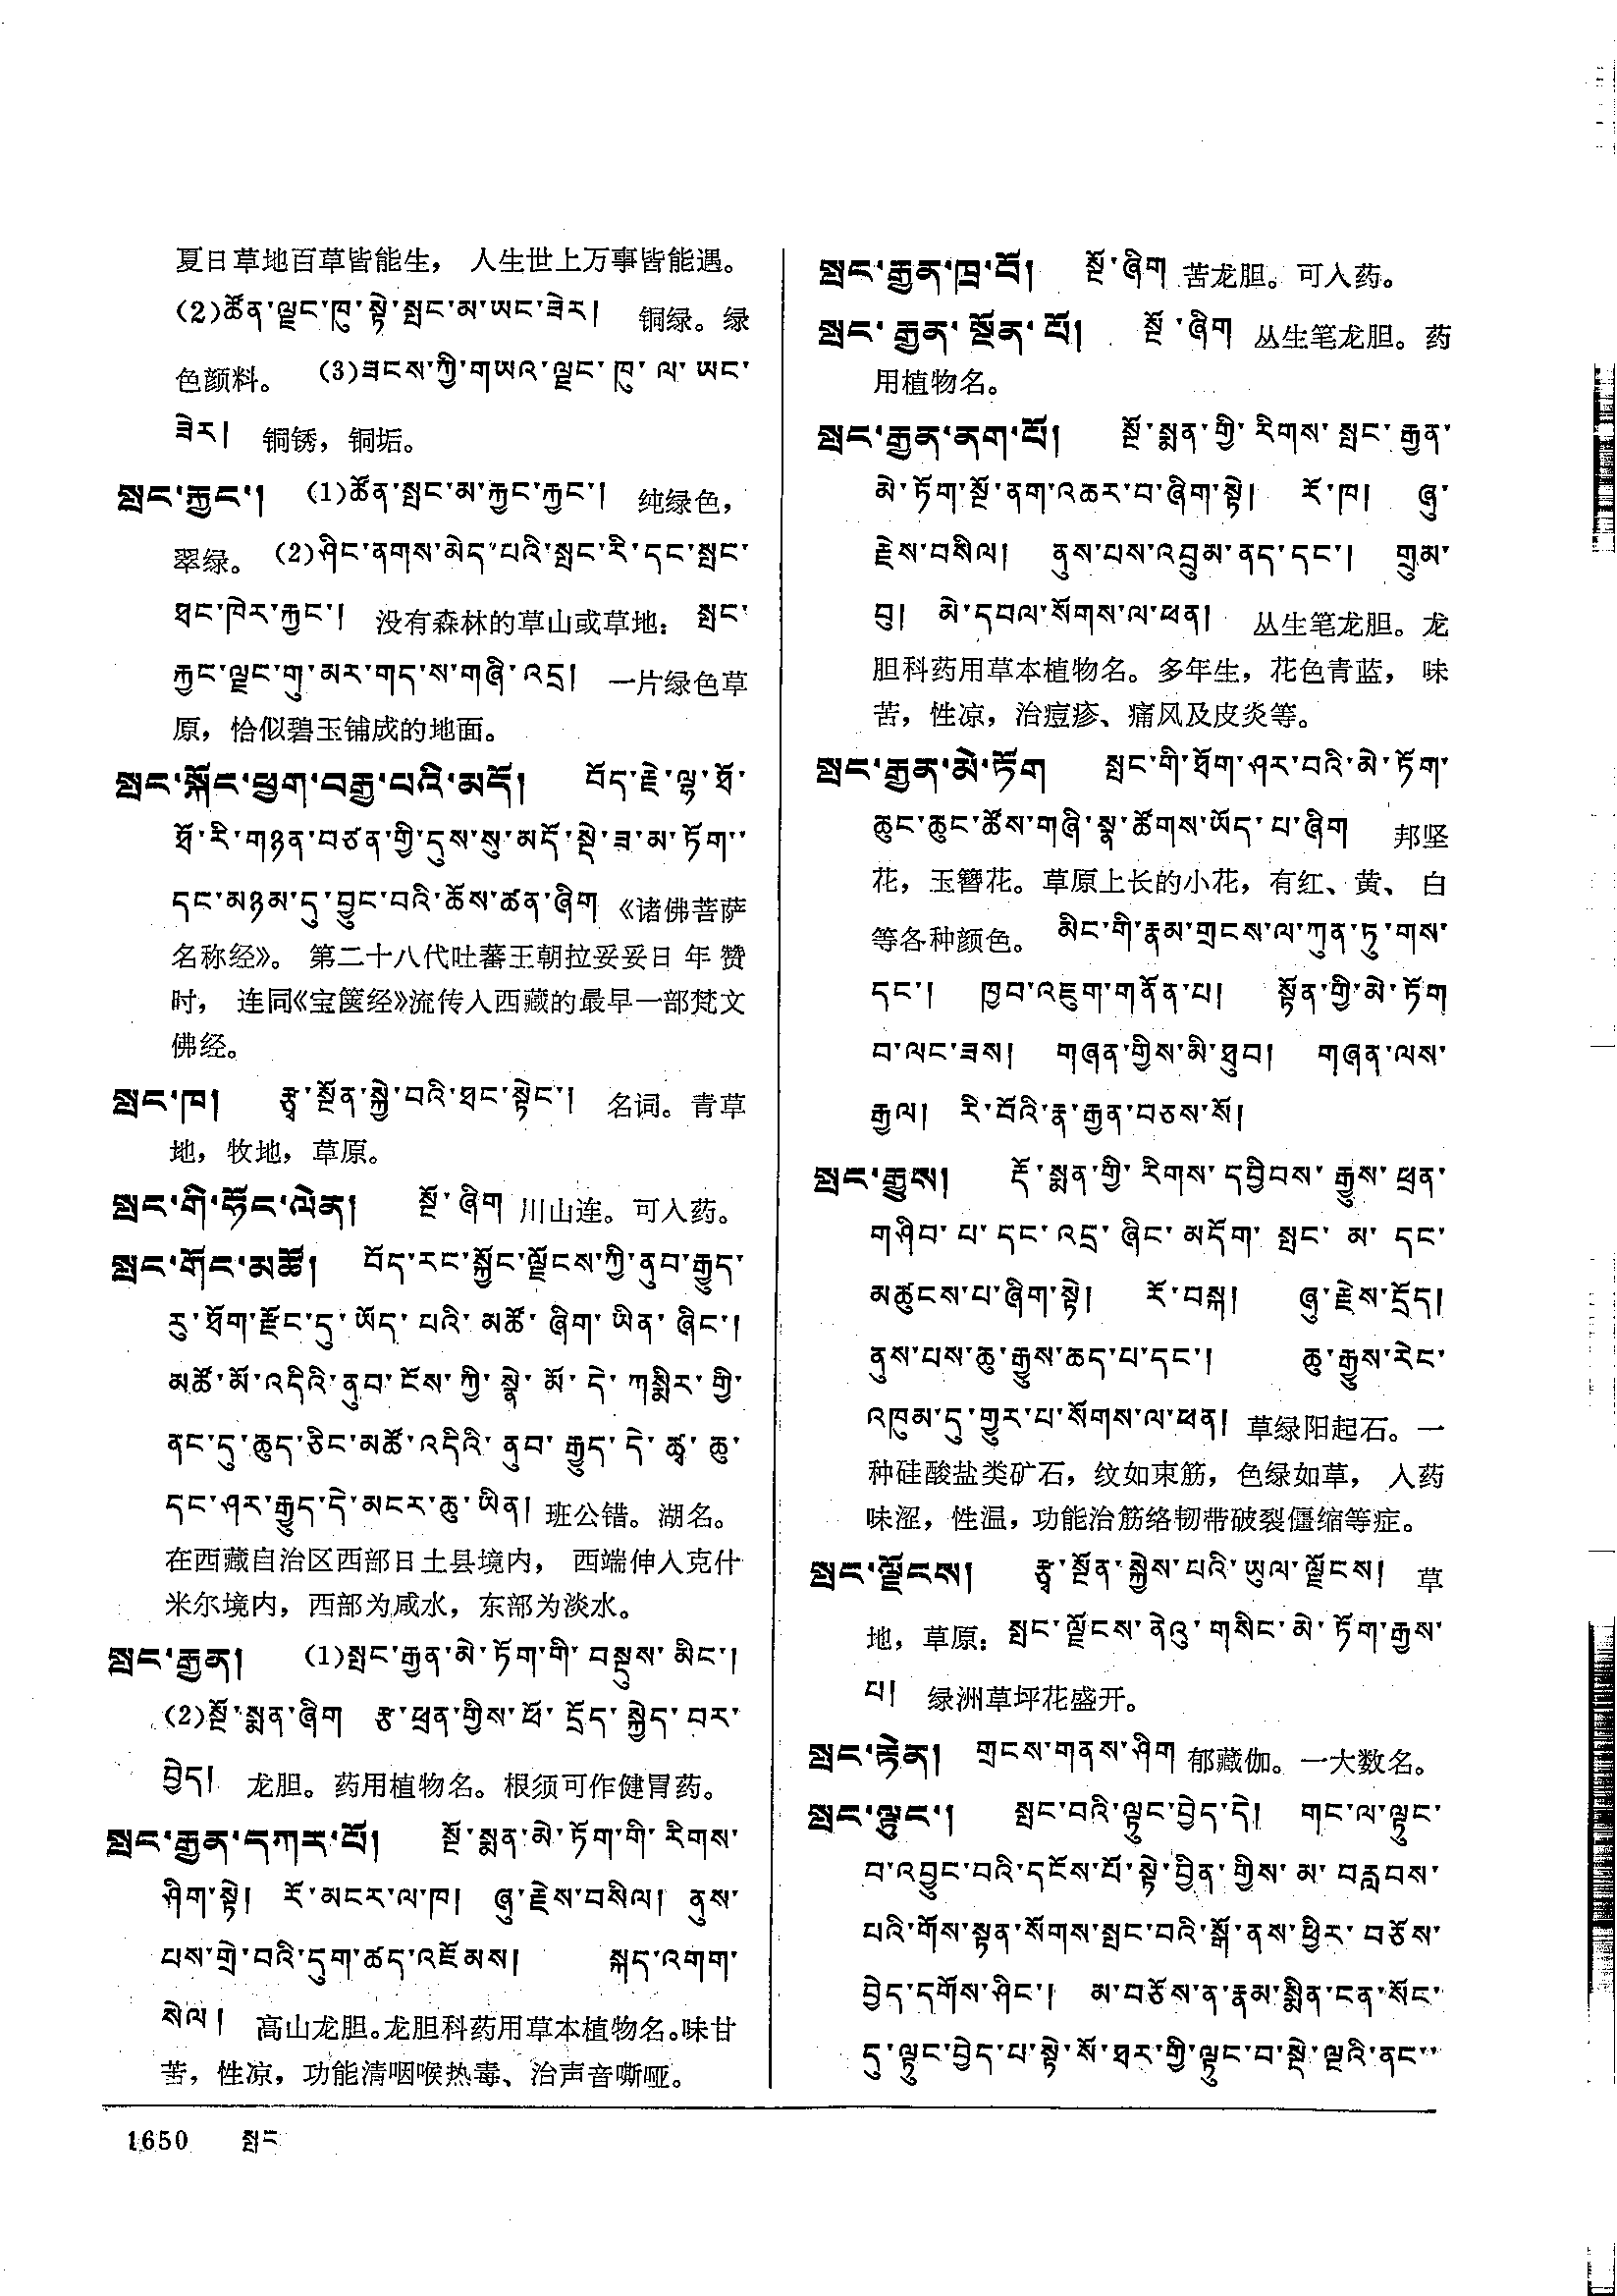 夏日草地百草皆能生， 人生世上万事皆能遇。
(2)ཚོན་ལྗང་ཁུ་སྟེ་སྤང་མ་ཡང་ཟེར། 铜绿。绿
色颜料。 (3)ཟངས་ཀྱི་གཡའ་ལྗང་ཁུ་ལ་ཡང་
ཟེར། 铜锈，铜垢。
སྤང་རྐྱང་། (1)ཚོན་སྤང་མ་རྐྱང་རྐྱང་། 纯绿色，
翠绿。(2)ཤིང་ནགས་མེད་པའི་སྤང་རི་དང་སྤང་
ཐང་ཁེར་རྐྱང་། 没有森林的草山或草地：སྤང་
རྐྱང་ལྗང་གུ་མར་གད་ས་གཞི་འདྲ། 一片绿色草
原，恰似碧玉铺成的地面。
སྤང་སྐོང་ཕྱག་བརྒྱ་པའི་མདོ། བོད་རྗེ་ལྷ་ཐོ་
ཐོ་རི་གཉན་བཙན་གྱི་དུས་སུ་མདོ་སྡེ་ཟ་མ་ཏོག་
དང་མཉམ་དུ་བྱུང་བའི་ཆོས་ཚན་ཞིག 《诸佛菩萨
名称经》。 第二十八代吐蕃王朝拉妥妥日年赞
时， 连同《宝箧经》流传入西藏的最早一部梵文
佛经。
སྤང་ཁ། རྩྭ་སྔོན་སྐྱེ་བའི་ཐང་སྟེང་། 名词。青草
地，牧地，草原。
སྤང་གི་ཧོང་ལེན། སྔོ་ཞིག 川山连。可入药。
སྤང་གོང་མཚོ། བོད་རང་སྐྱོང་ལྗོངས་ཀྱི་ནུབ་རྒྱུད་
རུ་ཐོག་རྫོང་དུ་ཡོད་པའི་མཚོ་ཞིག་ཡིན་ཞིང་།
མཚོ་མོ་འདིའི་ནུབ་ངོས་ཀྱི་སྣེ་མོ་དེ་ཀསྨིར་གྱི་
ནང་དུ་ཆུད་ཅིང་མཚོ་འདིའི་ནུབ་རྒྱུད་དེ་ཚྭ་ཆུ་
དང་ཤར་རྒྱུད་དེ་མངར་ཆུ་ཡིན། 班公错。湖名。
在西藏自治区西部日土县境内， 西端伸入克什
米尔境内，西部为咸水，东部为淡水。
སྤང་རྒྱན། (1)སྤང་རྒྱན་མེ་ཏོག་གི་བསྡུས་མིང་།
(2)སྔོ་སྨན་ཞིག རྩ་ཕྲན་གྱིས་ཕོ་དྲོད་སྐྱེད་བར་
བྱེད། 龙胆。药用植物名。根须可作健胃药。
སྤང་རྒྱན་དཀར་པོ། སྔོ་སྨན་མེ་ཏོག་གི་རིགས་
ཤིག་སྟེ། རོ་མངར་ལ་ཁ། ཞུ་རྗེས་བསིལ། ནུས་
པས་གྲེ་བའི་དུག་ཚད་འཇོམས། སྐད་འགག་
སེལ། 高山龙胆。龙胆科药用草本植物名。味甘
苦，性凉，功能清咽喉热毒、治声音嘶哑。
སྤང་རྒྱན་ཁྲ་བོ། སྔོ་ཞིག 苦龙胆。可入药。
སྤང་རྒྱན་སྔོན་པོ། སྔོ་ཞིག 丛生笔龙胆。药
用植物名。
སྤང་རྒྱན་ནག་པོ། སྔོ་སྨན་གྱི་རིགས་སྤང་རྒྱན་
མེ་ཏོག་སྔོ་ནག་འཆར་བ་ཞིག་སྟེ། རོ་ཁ། ཞུ་
རྗེས་བསིལ། ནུས་པས་འབྲུམ་ནད་དང་། གྲུམ་
བུ། མེ་དབལ་སོགས་ལ་ཕན། 丛生笔龙胆。龙
胆科药用草本植物名。多年生，花色青蓝， 味
苦，性凉，治痘疹、痛风及皮炎等。
སྤང་རྒྱན་མེ་ཏོག སྤང་གི་ཐོག་ཤར་བའི་མེ་ཏོག་
ཆུང་ཆུང་ཚོས་གཞི་སྣ་ཚོགས་ཡོད་པ་ཞིག 邦坚
花，玉簪花。草原上长的小花，有红、黄、白
等各种颜色。 མིང་གི་རྣམ་གྲངས་ལ་ཀུན་ཏུ་གས་
དང་། ཁྱབ་འཇུག་གནོན་པ། སྟོན་གྱི་མེ་ཏོག
བ་ལང་ཟས། གཞན་གྱིས་མི་ཐུབ། གཞན་ལས་
རྒྱལ། རི་བོའི་རྣ་རྒྱན་བཅས་སོ།
སྤང་རྒྱུས། རྡོ་སྨན་གྱི་རིགས་དབྱིབས་རྒྱུས་ཕྲན་
གཤིབ་པ་དང་འདྲ་ཞིང་མདོག་སྤང་མ་དང་
མཚུངས་པ་ཞིག་སྟེ། རོ་བསྐ། ཞུ་རྗེས་དྲོད།
ནུས་པས་ཆུ་རྒྱུས་ཆད་པ་དང་། ཆུ་རྒྱུས་རེང་
འཁུམ་དུ་གྱུར་པ་སོགས་ལ་ཕན། 草绿阳起石。一
种硅酸盐类矿石，纹如束筋，色绿如草， 入药
味涩，性温，功能治筋络韧带破裂僵缩等症。
སྤང་ལྗོངས། རྩྭ་སྔོན་སྐྱེས་པའི་ཡུལ་ལྗོངས། 草
地，草原：སྤང་ལྗོངས་ནེའུ་གསིང་མེ་ཏོག་རྒྱས་
པ། 绿洲草坪花盛开。
སྤང་རྟེན། གྲངས་གནས་ཤིག 郁藏伽。一大数名。
སྤང་ལྟུང་། སྤང་བའི་ལྟུང་བྱེད་དེ། གང་ལ་ལྟུང་
བ་འབྱུང་བའི་དངོས་པོ་སྟེ་བྱིན་གྱིས་མ་བརླབས་
པའི་གོས་སྟན་སོགས་སྤང་བའི་སྒོ་ནས་ཕྱིར་བཅོས་
བྱེད་དགོས་ཤིང་། མ་བཅོས་ན་རྣམ་སྨིན་ངན་སོང་
དུ་ལྟུང་བྱེད་པ་སྟེ་སོ་ཐར་གྱི་ལྟུང་བ་སྡེ་ལྔའི་ནང་
1650 སྤང